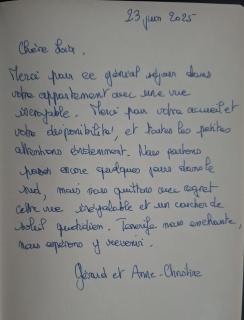 23 juin 2025
Chère Lora,
Merci pour ce génial séjour dans
votre appartement avec une vue
incroyable. Merci pour votre accueil et
votre disponibilité, et toutes les petites
attentions évidemment. Nous partons
passer encore quelques jours dans le
sud, mais nous quittons avec regret
cette vue inégalable et un coucher de
soleil quotidien. Tenerife nous enchante,
nous espérons y revenir.
Gérard et Anne-Christine